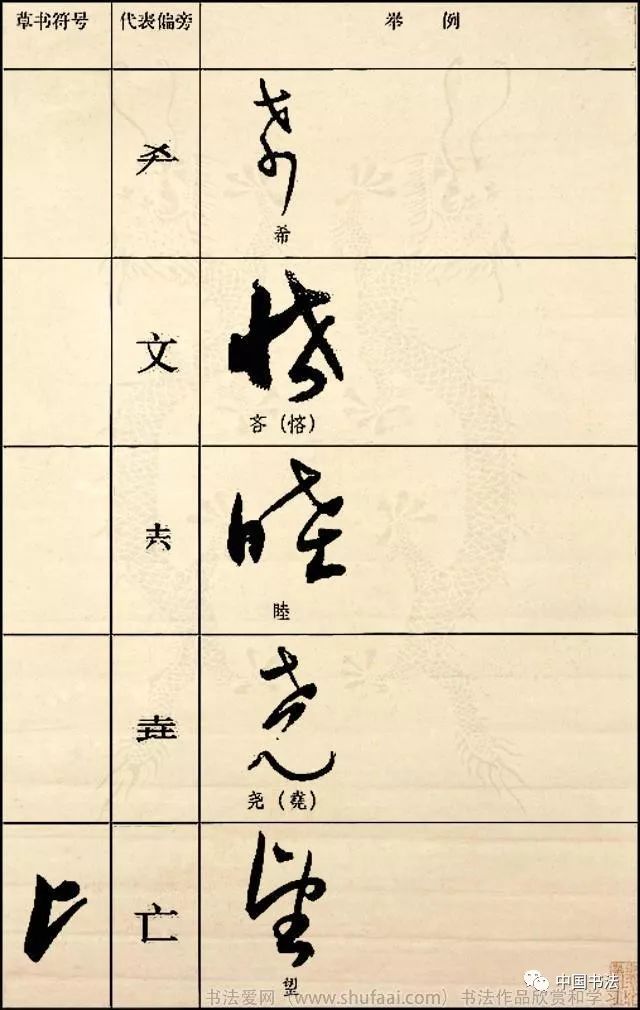 草书符号 代表偏旁 举 例
希
文
吝（悋）
圥
睦
垚
尧（堯）
亡
望
中国书法
书法爱网（www.shufaai.com）书法作品欣赏和学习